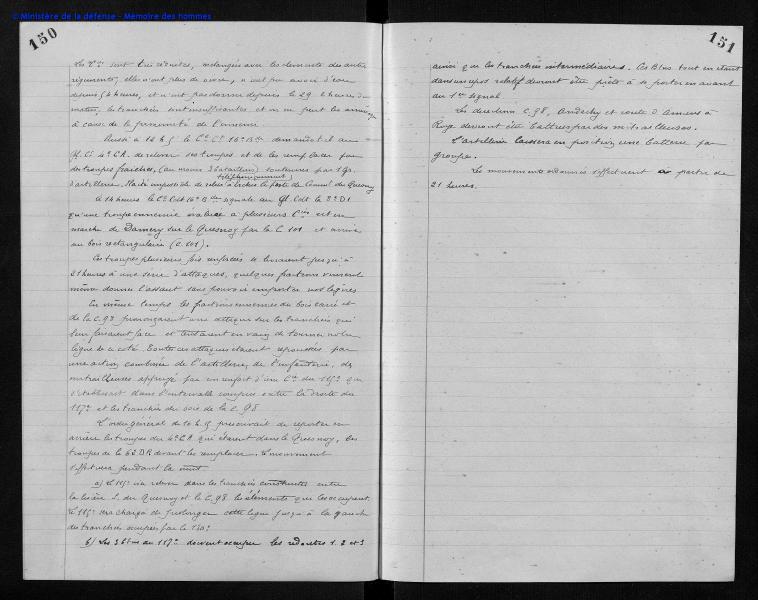 © Ministère de la défense - Mémoire des hommes
150
Les Cies sont très réduites, mélangées avec les éléments des autres
régiments, elles n'ont plus de
depuis 24 heures, et n'ont pas dormi depuis le 29 2 heures du
matin, les tranchées sont insuffisantes et on ne peut les
à cause de la proximité de l'ennemi.
Aussi à 12 h
Gl. Ct 4e C.A. de relever ses troupes et de les remplacer par
des troupes fraîches, (au moins 3 bataillons) soutenues par 1 gr.
téléphoniquement
d'artillerie. le poste de Comt du Quesnoy
à 14 heures le Cel Cdt 16e Bde signale au Gl. Cdt le 8e DI
qu'une troupe ennemie évaluée à plusieurs Cies est en
marche de Damery sur le Quesnoy par la C 101 et arrive
au bois rectangulaire (C. 101).
Ces troupes plusieurs fois renforcées se livraient jusqu'à
21 heures à une série d'attaques, quelques fractions vinrent
même donner l'assaut sans pouvoir emporter nos lignes
En même temps les fractions ennemies du bois carré et
de la C. 93 prononçaient une attaque sur les tranchées qui
leur faisaient face et tentaient en vain de tourner notre
ligne de ce côté. Toutes ces attaques étaient repoussées par
une action combinée de l'artillerie, de l'infanterie, des
mitrailleuses appuyé par un renfort d'une Cie du 115e qui
s'établissait dans l'intervalle compris entre la droite du
117e et les tranchées du bois de la C. 98
L'ordre général de 16 h prescrivait de reporter en
arrière les troupes du 4e C.A. qui étaient dans le Quesnoy, les
troupes de la 62 DR devant les remplacer. Ce mouvement
s'effectuera pendant la nuit
a) Le 115e ira relever dans les tranchées construites entre
la lisière S. du Quesnoy et la C. 98 les éléments qui les occupent.
Le 115e sera chargé de prolonger cette ligne jusqu'à la gauche
des tranchées occupées par le 130e
b) Les 3 Btns du 117e doivent occuper les redoutes 1. 2 et 3
151
ainsi que les tranchées intermédiaires. Ces Btns tout en étant
dans un repos relatif devront être prêts à se porter en avant
au 1er signal.
Les directions C. 98, Andechy et route d'Amiens à
Roye devront être battues par des mitrailleuses.
L'artillerie laissera en position une batterie par
groupe.
Les mouvements ordonnés s'effectuent à partir de
21 heures.